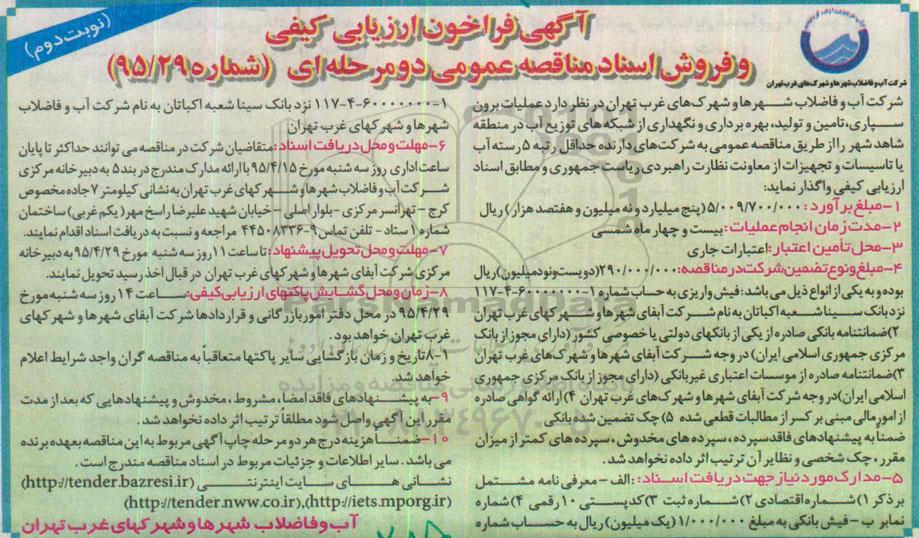 (نوبت دوم)
آگهی فراخوان ارزیابی کیفی
و فروش اسناد مناقصه عمومی دو مرحله ای (شماره ۹۵/۲۹)
شرکت آب و فاضلاب شهرها و شهرک های غرب تهران
شرکت آب و فاضلاب شهرها و شهرک های غرب تهران در نظر دارد عملیات برون
سپاری، تامین و تولید، بهره برداری و نگهداری از شبکه های توزیع آب در منطقه
شاهد شهر را از طریق مناقصه عمومی به شرکت های دارنده حداقل رتبه ۵ رسته آب
یا تاسیسات و تجهیزات از معاونت نظارت راهبردی ریاست جمهوری و مطابق اسناد
ارزیابی کیفی واگذار نماید:
۱-مبلغ برآورد: ۵/۰۰۹/۷۰۰/۰۰۰ (پنج میلیارد و نه میلیون و هفتصد هزار) ریال
۲-مدت زمان انجام عملیات: بیست و چهار ماه شمسی
۳-محل تأمین اعتبار: اعتبارات جاری
۴-مبلغ و نوع تضمین شرکت در مناقصه: ۲۹۰/۰۰۰/۰۰۰ (دویست و نود میلیون) ریال
بوده و به یکی از انواع ذیل می باشد: فیش واریزی به حساب شماره ۱-۶۰۰۰۰۰۰۰-۴-۱۱۷
نزد بانک سینا شعبه اکباتان به نام شرکت آبفای شهرها و شهرک های غرب تهران
۲)ضمانتنامه بانکی صادره از یکی از بانکهای دولتی یا خصوصی کشور (دارای مجوز از بانک
مرکزی جمهوری اسلامی ایران) در وجه شرکت آبفای شهرها و شهرک های غرب تهران
۳)ضمانتنامه صادره از موسسات اعتباری غیربانکی (دارای مجوز از بانک مرکزی جمهوری
اسلامی ایران) در وجه شرکت آبفای شهرها و شهرک های غرب تهران ۴) ارائه گواهی صادره
از امور مالی مبنی بر کسر از مطالبات قطعی شده ۵) چک تضمین شده بانکی
ضمناً به پیشنهادهای فاقد سپرده، سپرده های مخدوش، سپرده های کمتر از میزان
مقرر، چک شخصی و نظایر آن ترتیب اثر داده نخواهد شد.
۵-مدارک مورد نیاز جهت دریافت اسناد: الف - معرفی نامه مشتمل
بر ذکر ۱) شماره اقتصادی ۲) شماره ثبت ۳) کدپستی ۱۰ رقمی ۴) شماره
نمابر ب - فیش بانکی به مبلغ ۱/۰۰۰/۰۰۰ (یک میلیون) ریال به حساب شماره
۱-۶۰۰۰۰۰۰۰-۴-۱۱۷ نزد بانک سینا شعبه اکباتان به نام شرکت آب و فاضلاب
شهرها و شهرکهای غرب تهران
۶-مهلت و محل دریافت اسناد: متقاضیان شرکت در مناقصه می توانند حداکثر تا پایان
ساعت اداری روز سه شنبه مورخ ۹۵/۴/۱۵ با ارائه مدارک مندرج در بند ۵ به دبیرخانه مرکزی
شرکت آب و فاضلاب شهرها و شهرکهای غرب تهران به نشانی کیلومتر ۷ جاده مخصوص
کرج - تهرانسر مرکزی - بلوار اصلی - خیابان شهید علیرضا راسخ مهر (یکم غربی) ساختمان
شماره ۱ ستاد - تلفن تماس ۹-۴۴۵۰۸۳۳۶ مراجعه و نسبت به دریافت اسناد اقدام نمایند.
۷-مهلت و محل تحویل پیشنهاد: تا ساعت ۱۱ روز سه شنبه مورخ ۹۵/۴/۲۹ به دبیرخانه
مرکزی شرکت آبفای شهرها و شهرکهای غرب تهران در قبال اخذ رسید تحویل نمایند.
۸-زمان و محل گشایش پاکتهای ارزیابی کیفی: ساعت ۱۴ روز سه شنبه مورخ
۹۵/۴/۲۹ در محل دفتر امور بازرگانی و قراردادها شرکت آبفای شهرها و شهرکهای
غرب تهران خواهد بود.
۸-۱ تاریخ و زمان بازگشایی سایر پاکتها متعاقباً به مناقصه گران واجد شرایط اعلام
خواهد شد.
۹-به پیشنهادهای فاقد امضاء، مشروط، مخدوش و پیشنهادهایی که بعد از مدت
مقرر این آگهی واصل شود مطلقاً ترتیب اثر داده نخواهد شد.
۱۰-ضمناً هزینه درج هر دو مرحله چاپ آگهی مربوط به این مناقصه بعهده برنده
می باشد. سایر اطلاعات و جزئیات مربوط در اسناد مناقصه مندرج است.
نشانی های سایت اینترنتی (http://tender.bazresi.ir)
(http://tender.nww.co.ir),(http://iets.mporg.ir)
آب و فاضلاب شهرها و شهرکهای غرب تهران
ParsNamadData